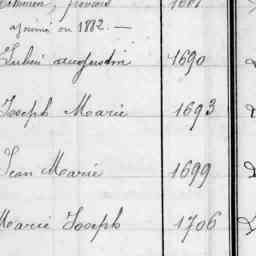 1687
ajourné en 1882. —
Lubin augustin 1690
Joseph Marie 1693
Jean Marie 1699
Marie Joseph 1706